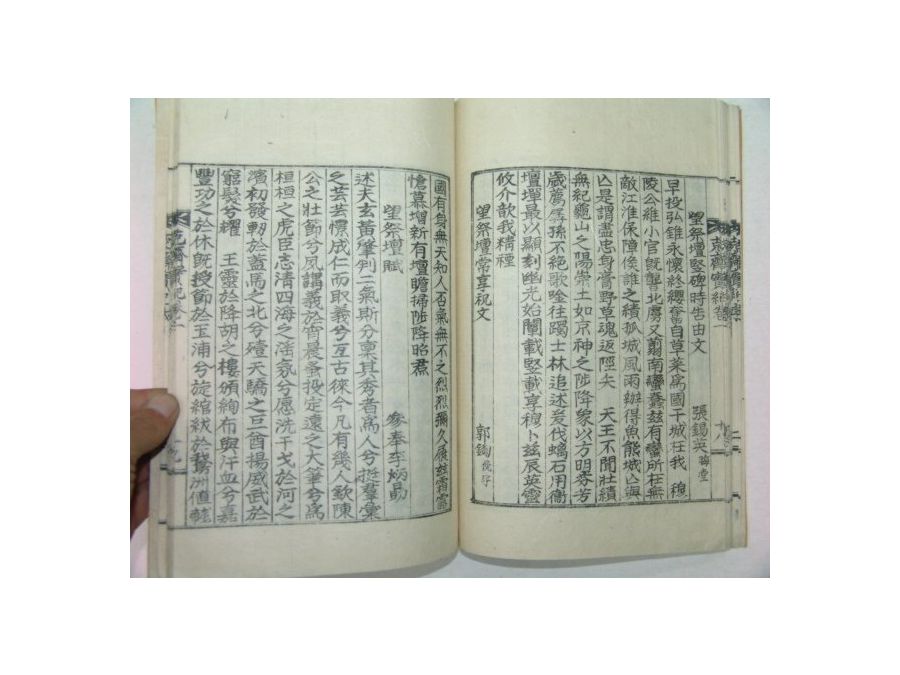 望祭壇竪碑時告由文 張錫英 晦堂
早投弘錐永懷終纓奮自草萊爲國干城在我 穆
陵公維小官旣讋北虜又翦南蠻蠢玆有蠻所在無
敵江淮保障俟誰之績孤城風雨辦得魚熊城亡與
亡是謂盡忠身膏野草魂返陘矣 天王不聞壯績
無紀龜山之陽崇土如京神之陟降象以方明芬芳
歲薦孱孫不絕歌唫往躅士林追述爰伐螭石用衛
壇墠最以顯刻幽光始闡載竪載享穆卜玆辰英靈
攸介歆我精禋
望祭壇常享祝文 郭鋾
國有身無天知人否氣無不之烈烈彌久履玆霜露
愴慕增新有壇瞻掃陟降昭焄
望祭壇賦 參奉李炳勗
述夫玄黃肇判二氣斯分稟其秀者爲人兮挺羣彙
之芸芸慣成仁而取義兮亙古徠今凡有幾人欽陳
公之壯節兮夙講義於宵晨蚤投定遠之大筆兮爲
桓桓之虎臣志清四海之淫氛兮愿洗干戈於河之
濱初發軔於蓋馬之北兮殪天驕之旦酋揚威武於
窮髮兮耀 王靈於降胡之樓頒絢布與汗血兮嘉
豐功之於休旣授節於玉浦兮旋綰紱於鵝洲値